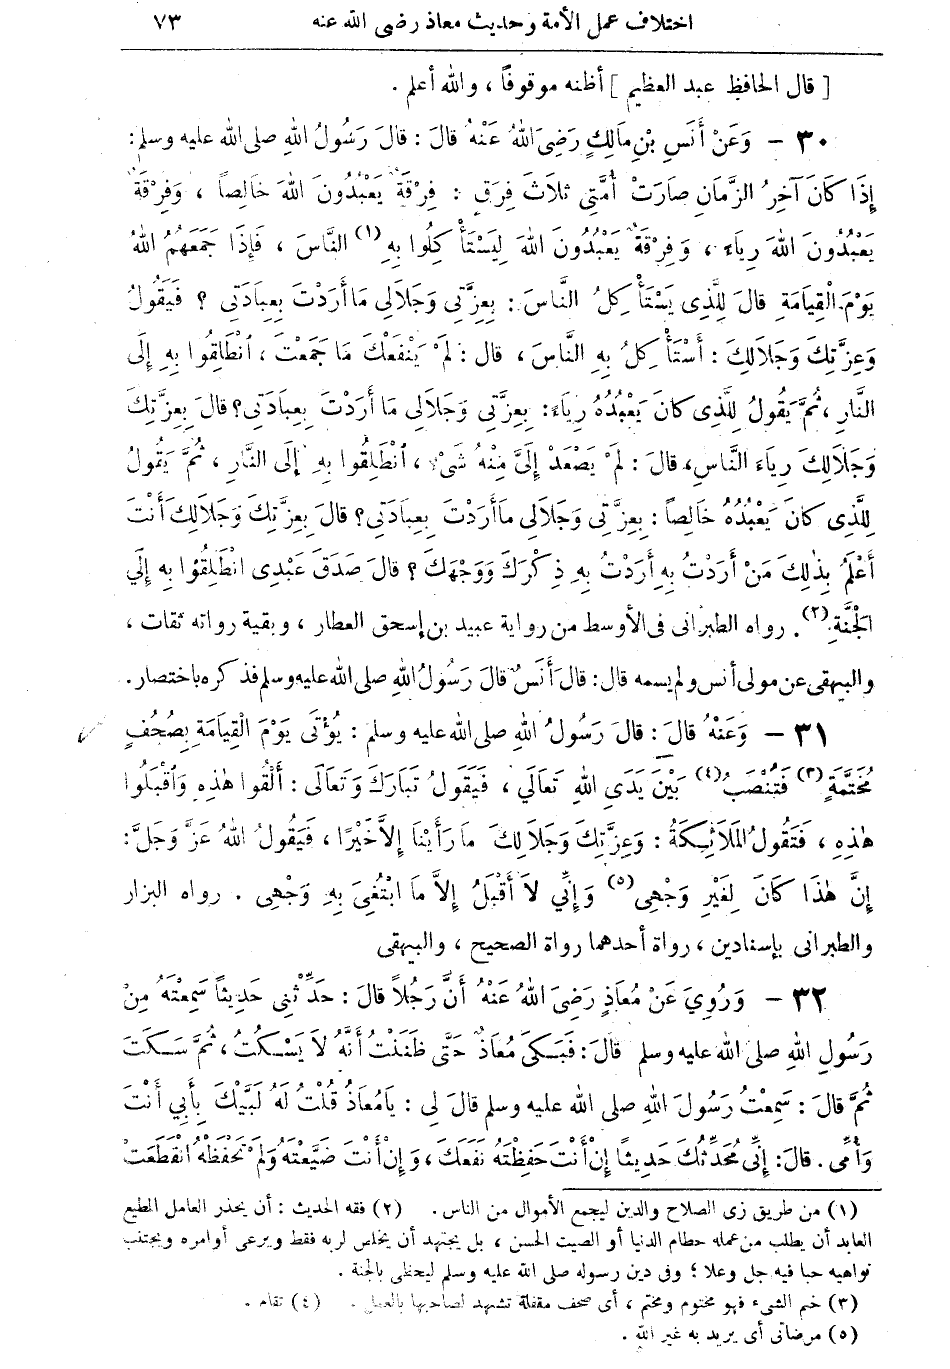 اختلاف عمل الأمة وحديث معاذ رضى الله عنه ٧٣
[ قال الحافظ عبد العظيم ] أظنه موقوفاً ، والله أعلم .
٣٠ — وَعَنْ أَنَسِ بْنِ مَالِكٍ رَضِىَ اللهُ عَنْهُ قالَ : قالَ رَسُولُ اللهِ صلى الله عليه وسلم :
إِذَا كَانَ آخِرُ الزَّمَانِ صَارَتْ أُمَّتِي ثَلَاثَ فِرَقٍ : فِرْقَةٌ يَعْبُدُونَ اللهَ خَالِصاً ، وَفِرْقَةٌ
يَعْبُدُونَ اللهَ رِيَاءً ، وَفِرْقَةٌ يَعْبُدُونَ اللهَ لِيَسْتَأْكِلُوا بِهِ (١) النَّاسَ ، فَإِذَا جَمَعَهُمُ اللهُ
يَوْمَ الْقِيَامَةِ قالَ لِلَّذِى يَسْتَأْكِلُ النَّاسَ : بِعِزَّتِي وَجَلَالِي مَا أَرَدْتَ بِعِبَادَتِي ؟ فَيَقُولُ
وَعِزَّتِكَ وَجَلَالِكَ : أَسْتَأْكِلُ بِهِ النَّاسَ ، قال : لَمْ يَنْفَعْكَ مَا جَمَعْتَ ، انْطَلِقُوا بِهِ إِلَى
النَّارِ ، ثُمَّ يَقُولُ لِلَّذِى كانَ يَعْبُدُهُ رِيَاءً : بِعِزَّتِي وَجَلَالِي مَا أَرَدْتَ بِعِبَادَتِي ؟ قالَ بِعِزَّتِكَ
وَجَلَالِكَ رِيَاءَ النَّاسِ ، قالَ : لَمْ يَصْعَدْ إِلَىَّ مِنْهُ شَىْءٌ ، انْطَلِقُوا بِهِ إِلَى النَّارِ ، ثُمَّ يَقُولُ
لِلَّذِى كانَ يَعْبُدُهُ خَالِصاً : بِعِزَّتِي وَجَلَالِي مَا أَرَدْتَ بِعِبَادَتِي ؟ قالَ بِعِزَّتِكَ وَجَلَالِكَ أَنْتَ
أَعْلَمُ بِذٰلِكَ مَنْ أَرَدْتُ بِهِ أَرَدْتُ بِهِ ذِكْرَكَ وَوَجْهَكَ ؟ قالَ صَدَقَ عَبْدِى انْطَلِقُوا بِهِ إِلَى
الْجَنَّةِ (٢) . رواه الطبرانى فى الأوسط من رواية عبيد بن إسحق العطار ، وبقية رواته ثقات ،
والبيهقى عن مولى أنس ولم يسمه قال : قال أَنَسٌ قالَ رَسُولُ اللهِ صلى الله عليه وسلم فذكره باختصار .
٣١ — وَعَنْهُ قالَ : قالَ رَسُولُ اللهِ صلى الله عليه وسلم : يُؤْتَى يَوْمَ الْقِيَامَةِ بِصُحُفٍ
مُخَتَّمَةٍ (٣) فَتُنْصَبُ (٤) بَيْنَ يَدَىِ اللهِ تَعَالَى ، فَيَقُولُ تَبَارَكَ وَتَعَالَى : أَلْقُوا هٰذِهِ وَاقْبَلُوا
هٰذِهِ ، فَتَقُولُ الْمَلَائِكَةُ : وَعِزَّتِكَ وَجَلَالِكَ مَا رَأَيْنَا إِلاَّ خَيْرًا ، فَيَقُولُ اللهُ عَزَّ وَجَلَّ :
إِنَّ هٰذَا كَانَ لِغَيْرِ وَجْهِى (٥) وَإِنِّى لاَ أَقْبَلُ إِلاَّ مَا ابْتُغِىَ بِهِ وَجْهِى . رواه البزار
والطبرانى بإسنادين ، رواة أحدهما رواة الصحيح ، والبيهقى
٣٢ — وَرُوِىَ عَنْ مُعَاذٍ رَضِىَ اللهُ عَنْهُ أَنَّ رَجُلاً قالَ : حَدِّثْنِي حَدِيثاً سَمِعْتَهُ مِنْ
رَسُولِ اللهِ صلى الله عليه وسلم قالَ : فَبَكَى مُعَاذٌ حَتَّى ظَنَنْتُ أَنَّهُ لَا يَسْكُتُ ، ثُمَّ سَكَتَ
ثُمَّ قالَ : سَمِعْتُ رَسُولَ اللهِ صلى الله عليه وسلم قالَ لِى : يَا مُعَاذُ قُلْتُ لَهُ لَبَّيْكَ بِأَبِي أَنْتَ
وَأُمِّى . قالَ : إِنِّى مُحَدِّثُكَ حَدِيثًا إِنْ أَنْتَ حَفِظْتَهُ نَفَعَكَ ، وَإِنْ أَنْتَ ضَيَّعْتَهُ وَلَمْ تَحْفَظْهُ انْقَطَعَتْ
(١) من طريق زى الصلاح والدين ليجمع الأموال من الناس . (٢) فقه الحديث : أن يحذر العامل المطيع
العابد أن يطلب من عمله حطام الدنيا أو الصيت الحسن ، بل يجتهد أن يخلص لربه فقط ويرعى أوامره ويجتنب
نواهيه حبا فيه جل وعلا ؛ وفى دين رسوله صلى الله عليه وسلم ليحظى بالجنة .
(٣) ختم الشىء فهو مختوم ومختم ، أى صحف مقفلة تشهد لصاحبها بالعمل . (٤) تقام .
(٥) مرضاتى أى يريد به غير الله .